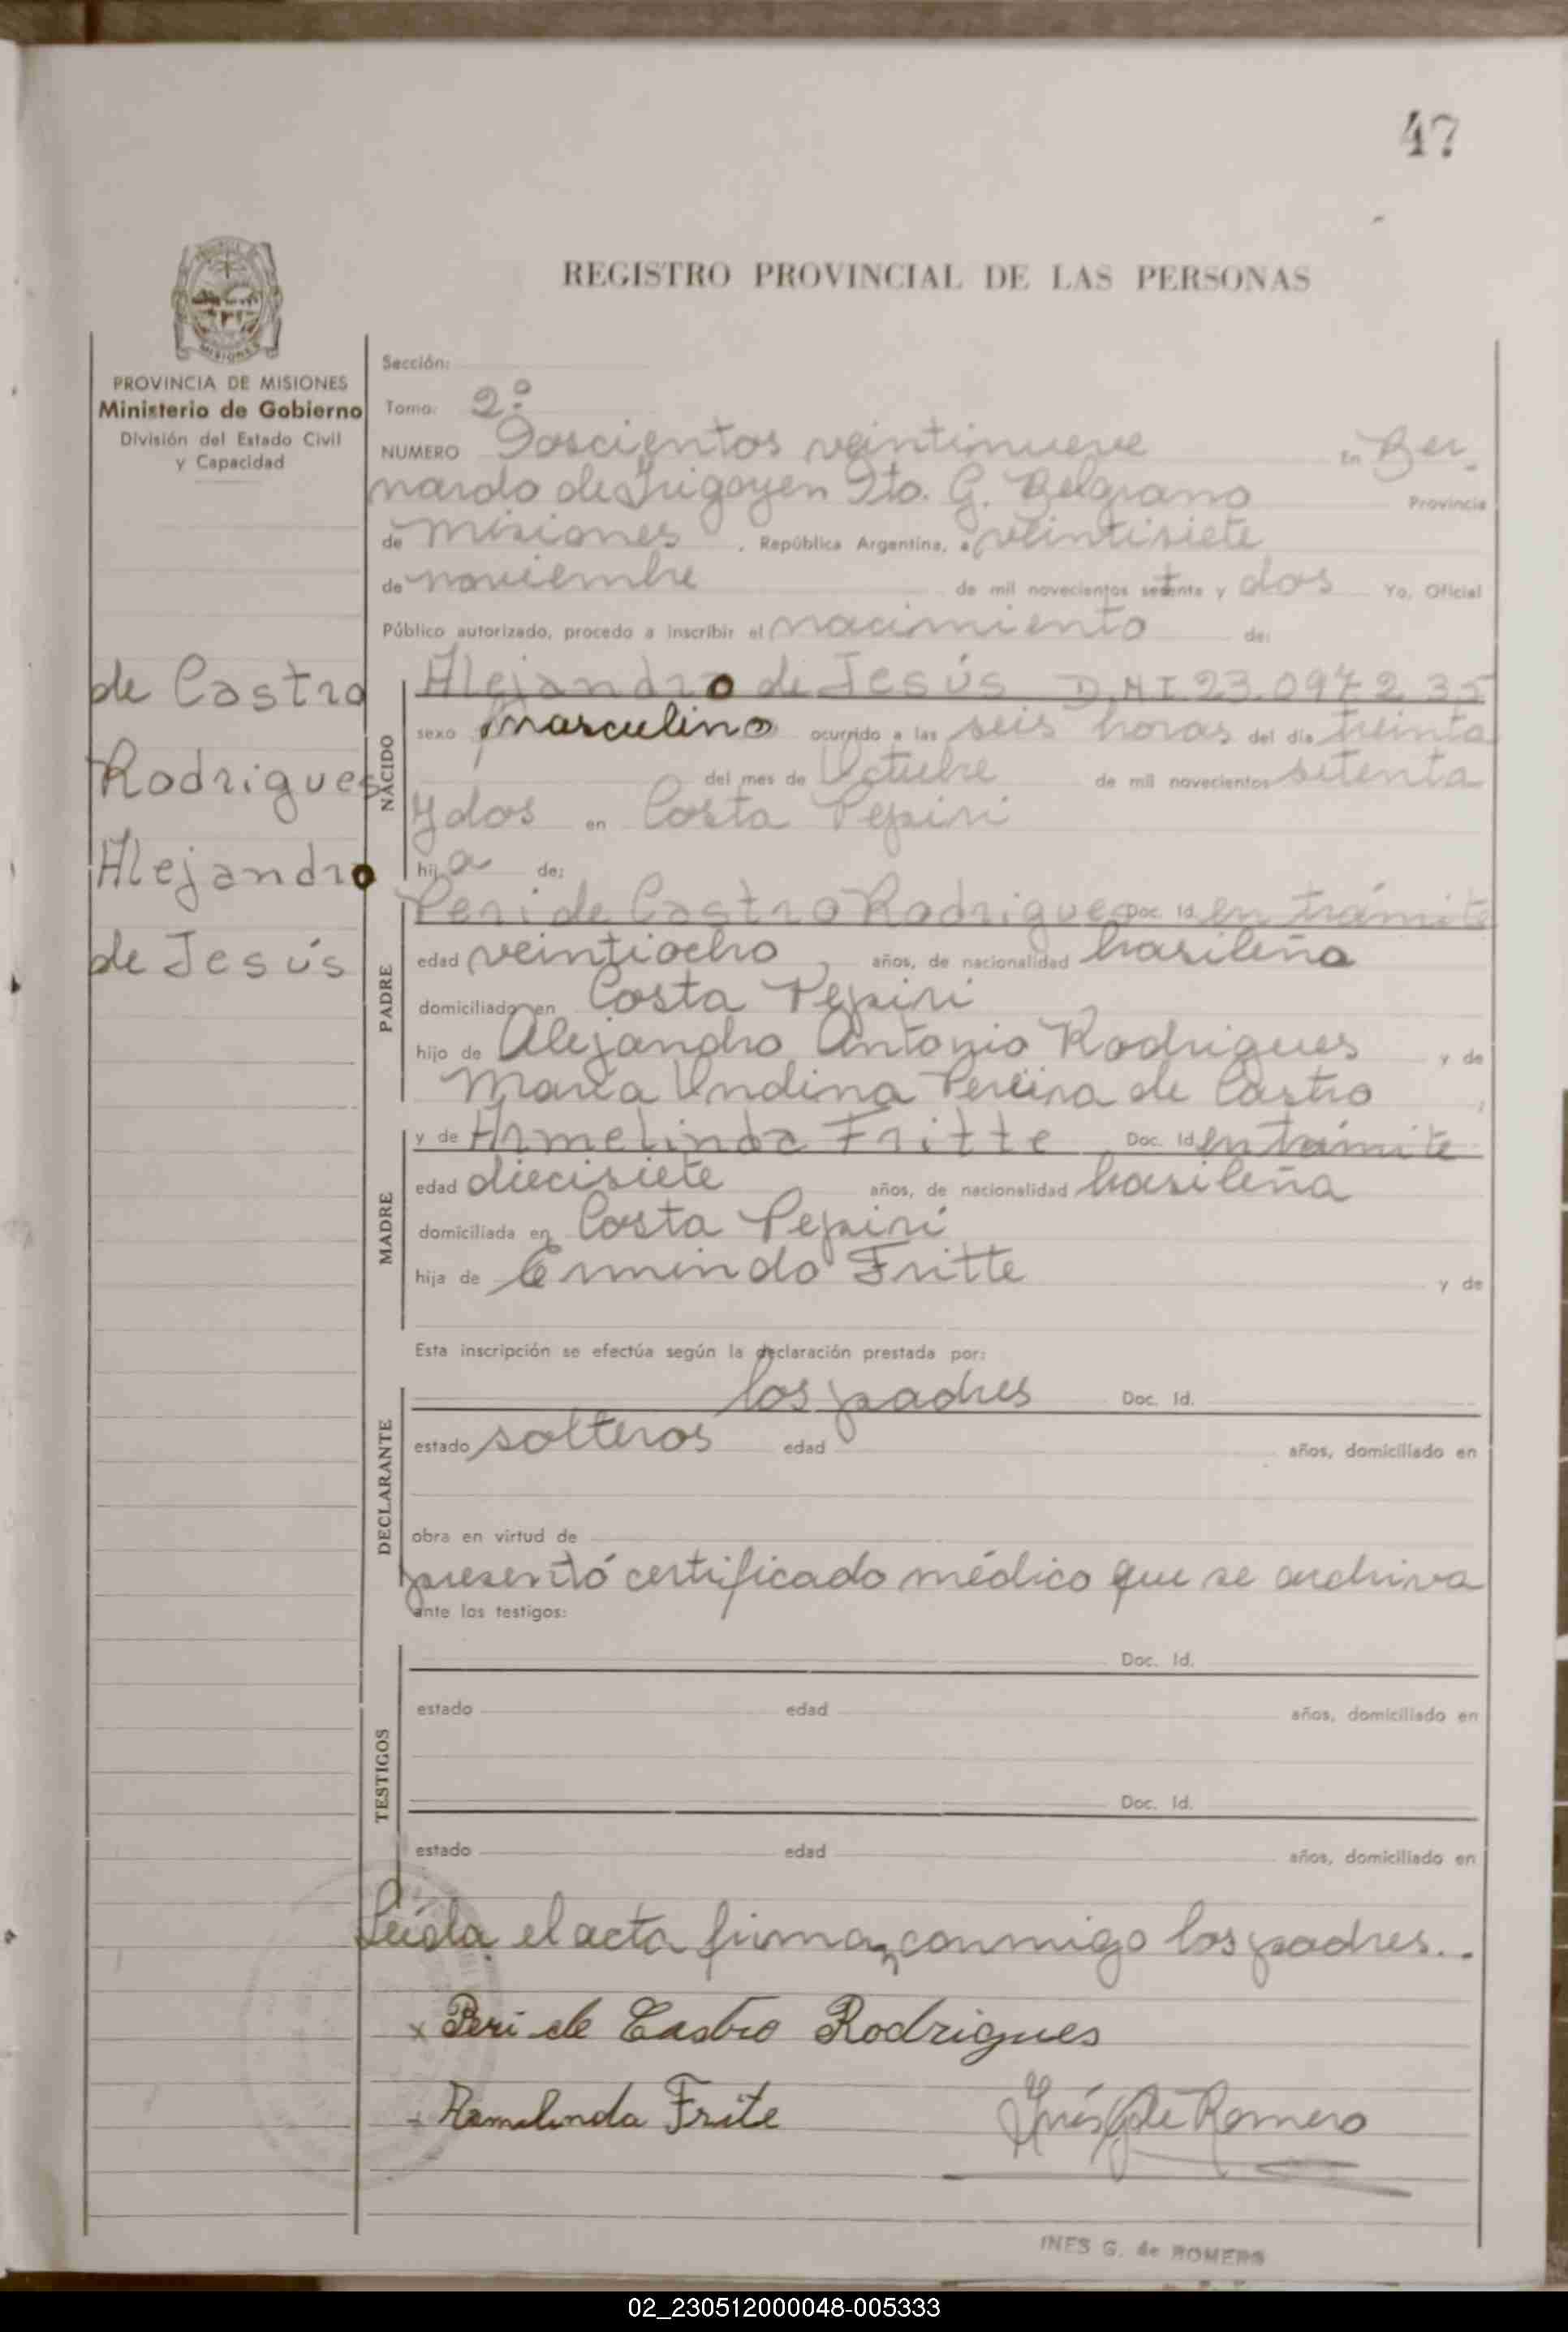 47
REGISTRO PROVINCIAL DE LAS PERSONAS
PROVINCIA DE MISIONES
Ministerio de Gobierno
División del Estado Civil
y Capacidad
Sección:
Tomo: 2º
NUMERO Doscientos veintinueve En Ber-
nardo de Irigoyen Dto. G. Belgrano Provincia
de Misiones, República Argentina, a veintisiete
de noviembre de mil novecientos setenta y dos Yo, Oficial
Público autorizado, procedo a inscribir el nacimiento de:
de Castro
Rodrigues
Alejandro
de Jesús
NACIDO
Alejandro de Jesús D.N.I 23.097235
sexo masculino ocurrido a las seis horas del día treinta
del mes de Octubre de mil novecientos setenta
y dos en Costa Pepiri
hija de:
PADRE
Peri de Castro Rodrigues Doc. Id. en trámite
edad veintiocho años, de nacionalidad brasileña
domiciliado en Costa Pepiri
hijo de Alejandro Antonio Rodrigues y de
Maria Undina Pereira de Castro
MADRE
y de Armelinda Fritte Doc. Id. en trámite
edad diecisiete años, de nacionalidad brasileña
domiciliada en Costa Pepiri
hija de Ermindo Fritte y de
Esta inscripción se efectúa según la declaración prestada por:
DECLARANTE
los padres Doc. Id.
estado solteros edad años, domiciliado en
obra en virtud de
presentó certificado médico que se archiva
ante los testigos:
TESTIGOS
Doc. Id.
estado edad años, domiciliado en
Doc. Id.
estado edad años, domiciliado en
Leída el acta firman conmigo los padres..
x Peri de Castro Rodrigues
Armelinda Frite Inés G de Romero
INES G. de ROMERO
02_230512000048-005333